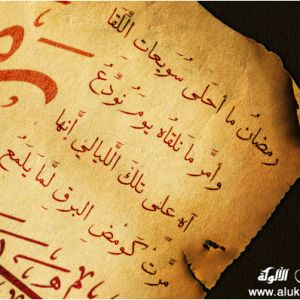 رمضانُ ما أحلى سويعات اللِّقا
وأمرَّ ما نلقاه يومَ نودِّعُ
آه على تلكَ الليالي إنَّها
مرَّتْ كومضِ البرقِ لمَّا يَلمع
الألوكة
www.aluk